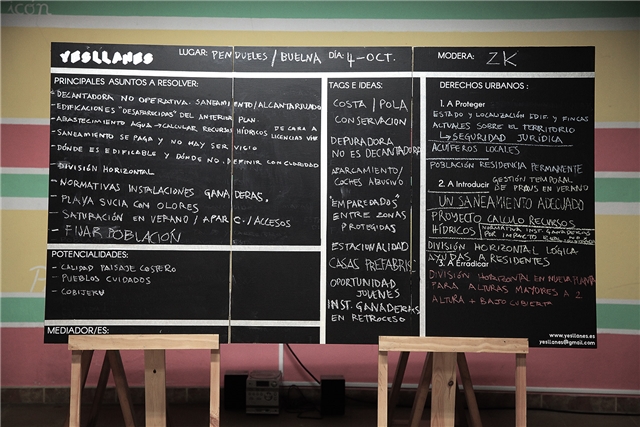 YESLLANES
LUGAR: PENDUELES / BUELNA DÍA: 4-OCT.
MODERA: ZK
PRINCIPALES ASUNTOS A RESOLVER:
- DECANTADORA NO OPERATIVA. SANEAMIENTO/ALCANTARILLADO
- EDIFICACIONES "DESAPARECIDAS" DEL ANTERIOR PLAN
- ABASTECIMIENTO AGUA → CALCULAR RECURSOS HÍDRICOS DE CARA A LICENCIAS VIV
- SANEAMIENTO SE PAGA Y NO HAY SERVICIO
- DÓNDE ES EDIFICABLE Y DÓNDE NO. DEFINIR CON CLARIDAD
- DIVISIÓN HORIZONTAL
- NORMATIVAS INSTALACIONES GANADERAS.
- PLAYA SUCIA CON OLORES
- SATURACIÓN EN VERANO / APARC. / ACCESOS
- FIJAR POBLACIÓN
POTENCIALIDADES:
- CALIDAD PAISAJE COSTERO
- PUEBLOS CUIDADOS
- COBIJERU
MEDIADOR/ES:
TAGS E IDEAS:
COSTA / POLA
CONSERVACIÓN
DEPURADORA
NO ES DECANTADORA
APARCAMIENTO/
COCHES ABUSIVO
"EMPAREDADOS"
ENTRE ZONAS
PROTEGIDAS
ESTACIONALIDAD
CASAS PREFABRIC
OPORTUNIDAD
JÓVENES
INST. GANADERAS
EN RETROCESO
DERECHOS URBANOS:
1. A Proteger
ESTADO Y LOCALIZACIÓN EDIF. Y FINCAS
ACTUALES SOBRE EL TERRITORIO
SEGURIDAD JURÍDICA
ACUÍFEROS LOCALES
POBLACIÓN RESIDENCIA PERMANENTE
2. A Introducir GESTIÓN TEMPORAL
EN VERANO
UN SANEAMIENTO ADECUADO
PROYECTO CÁLCULO RECURSOS
HÍDRICOS NORMATIVA INST. GANADERAS
POR IMPACTO
DIVISIÓN HORIZONTAL LÓGICA
AYUDAS A RESIDENTES
3. A Erradicar
DIVISIÓN HORIZONTAL EN NUEVA PLANTA
PARA ALTURAS MAYORES A 2
ALTURA + BAJO CUBIERTA
www.yesllanes.es
yesllanes@gmail.com